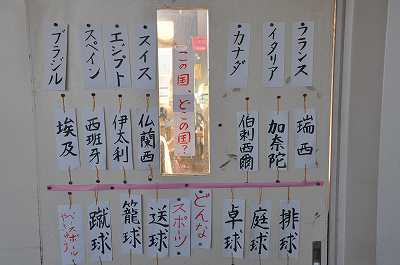 この国、どこの国?
フランス
イタリア
カナダ
スイス
エジプト
スペイン
ブラジル
瑞西
加奈陀
伯剌西爾
仏蘭西
伊太利
西班牙
埃及
どんな
スポーツ
排球
庭球
卓球
送球
籠球
蹴球
ベースボール